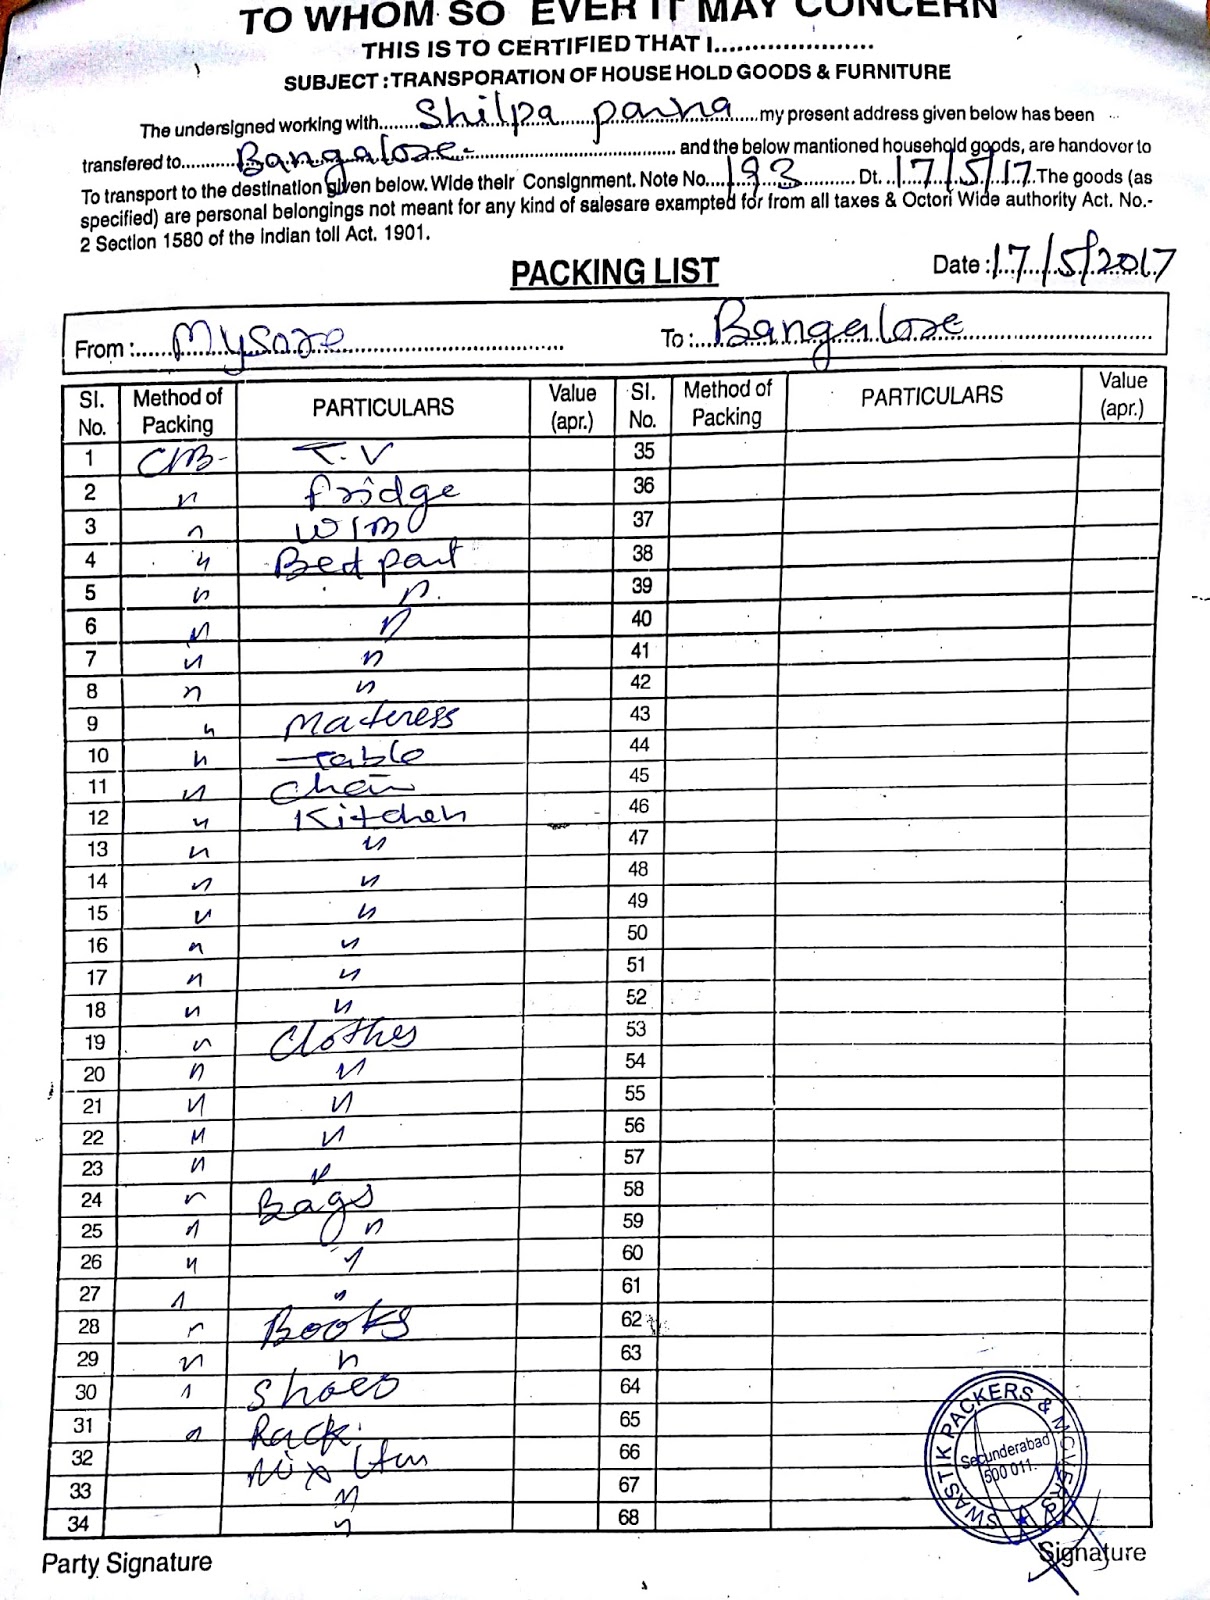 TO WHOM SO EVER IT MAY CONCERN
THIS IS TO CERTIFIED THAT I......................
SUBJECT : TRANSPORATION OF HOUSE HOLD GOODS & FURNITURE
The undersigned working with........Shilpa parna......my present address given below has been
transfered to...........Bangalore...........and the below mantioned household goods, are handover to
To transport to the destination given below. Wide their Consignment. Note No....193......... Dt. ..17/5/17..The goods (as
specified) are personal belongings not meant for any kind of salesare exampted for from all taxes & Octori Wide authority Act. No.-
2 Section 1580 of the indian toll Act. 1901.
PACKING LIST
Date :17/5/2017
From :......Mysore...............
To :.....Bangalore...............
Sl. No. Method of Packing PARTICULARS Value (apr.) Sl. No. Method of Packing PARTICULARS Value (apr.)
1 C/B- T.V 35
2 " fridge 36
3 " W/B 37
4 " Bed part 38
5 " " 39
6 " " 40
7 " " 41
8 " " 42
9 " Matress 43
10 " Table 44
11 " Chair 45
12 " Kitchen 46
13 " " 47
14 " " 48
15 " " 49
16 " " 50
17 " " 51
18 " " 52
19 " Clothes 53
20 " " 54
21 " " 55
22 " " 56
23 " " 57
24 " Bags 58
25 " " 59
26 " " 60
27 " " 61
28 " Books 62
29 " " 63
30 " Shoes 64
31 " Rack. 65
32 Mix Itm 66
33 " 67
34 " 68
SWASTIK PACKERS & MOVERS
Secunderabad
500 011.
Party Signature
Signature